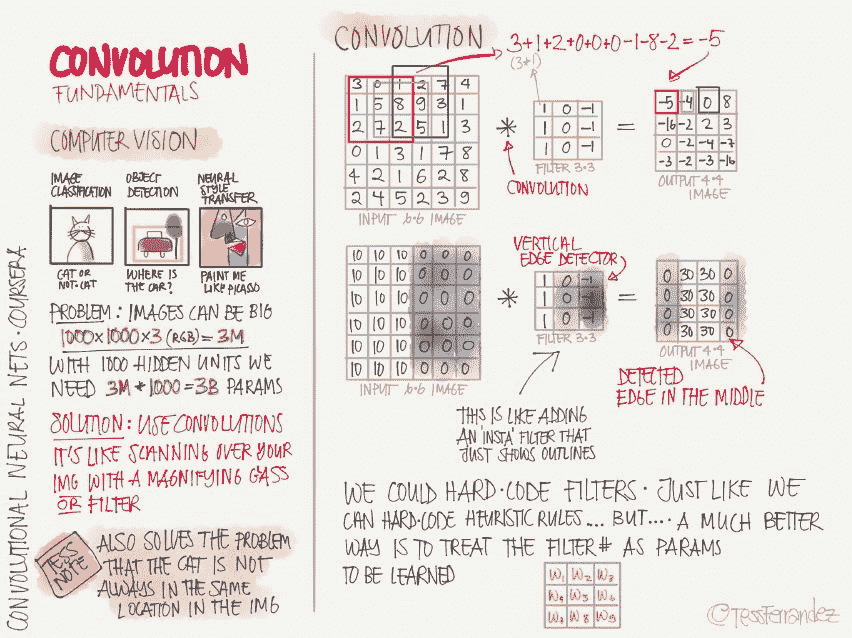 CONVOLUTIONAL NEURAL NETS · COURSERA
CONVOLUTION
FUNDAMENTALS
COMPUTER VISION
IMAGE CLASSIFICATION
OBJECT DETECTION
NEURAL STYLE TRANSFER
CAT OR NOT-CAT
WHERE IS THE CAR?
PAINT ME LIKE PICASSO
PROBLEM: IMAGES CAN BE BIG
1000×1000×3 (RGB) = 3M
WITH 1000 HIDDEN UNITS WE
NEED 3M * 1000 = 3B PARAMS
SOLUTION: USE CONVOLUTIONS
IT'S LIKE SCANNING OVER YOUR
IMG WITH A MAGNIFYING GASS
OR FILTER
TESS NOTE
ALSO SOLVES THE PROBLEM
THAT THE CAT IS NOT
ALWAYS IN THE SAME
LOCATION IN THE IMG
CONVOLUTION
3+1+2+0+0+0-1-8-2=-5
(3+1)
3 0 1 2 7 4
1 5 8 9 3 1
2 7 2 5 1 3
0 1 3 1 7 8
4 2 1 6 2 8
2 4 5 2 3 9
INPUT 6·6 IMAGE
*
CONVOLUTION
1 0 -1
1 0 -1
1 0 -1
FILTER 3·3
=
-5 -4 0 8
-16 -2 2 3
0 -2 -4 -7
-3 -2 -3 -16
OUTPUT 4·4
IMAGE
10 10 10 0 0 0
10 10 10 0 0 0
10 10 10 0 0 0
10 10 10 0 0 0
10 10 10 0 0 0
10 10 10 0 0 0
INPUT 6·6 IMAGE
*
VERTICAL
EDGE DETECTOR
1 0 -1
1 0 -1
1 0 -1
FILTER 3·3
=
0 30 30 0
0 30 30 0
0 30 30 0
0 30 30 0
OUTPUT 4·4
IMAGE
DETECTED
EDGE IN THE MIDDLE
THIS IS LIKE ADDING
AN 'INSTA' FILTER THAT
JUST SHOWS OUTLINES
WE COULD HARD·CODE FILTERS · JUST LIKE WE
CAN HARD·CODE HEURISTIC RULES... BUT.... A MUCH BETTER
WAY IS TO TREAT THE FILTER # AS PARAMS
TO BE LEARNED
W1 W2 W3
W4 W5 W6
W7 W8 W9
©TessFerrandez